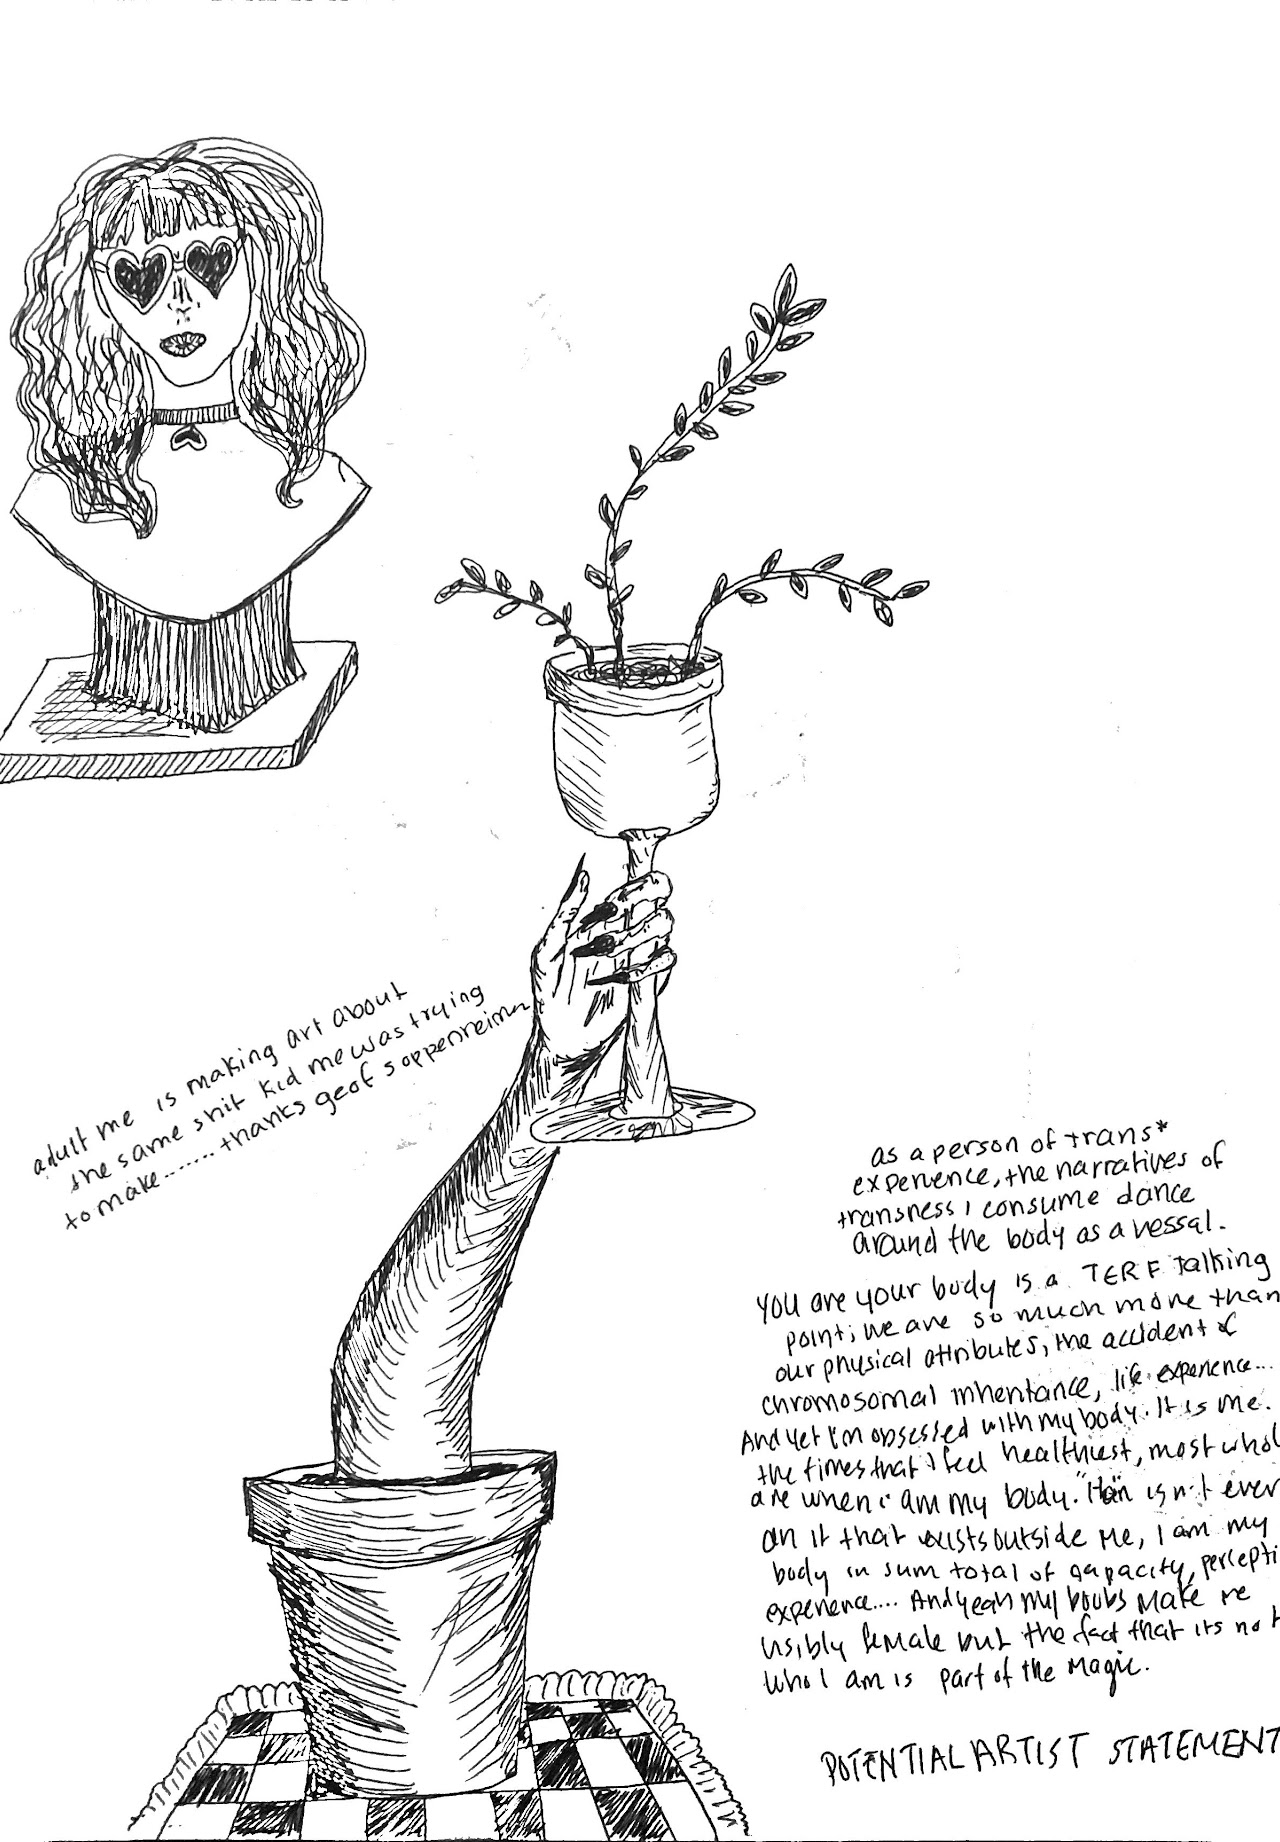 adult me is making art about
the same shit kid me was trying
to make....... thanks geof soppenheimer
as a person of trans*
experience, the narratives of
transness i consume dance
around the body as a vessal.
You are your body is a TERF Talking
point; we are so much more than
our physical attributes, the accident of
chromosomal inheritance, life experience...
And yet I'm obsessed with my body. It is me.
the times that I feel healthiest, most whol
are when i am my body. isn't ever
an it that exists outside me, I am my
body in sum total of capacity, percepti
experience.... And yeah my boobs make me
visibly female but the fact that its not
who I am is part of the Magic.
POTENTIAL ARTIST STATEMENT